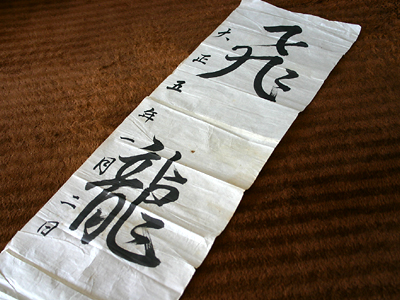 飛龍
大正五年一月二日